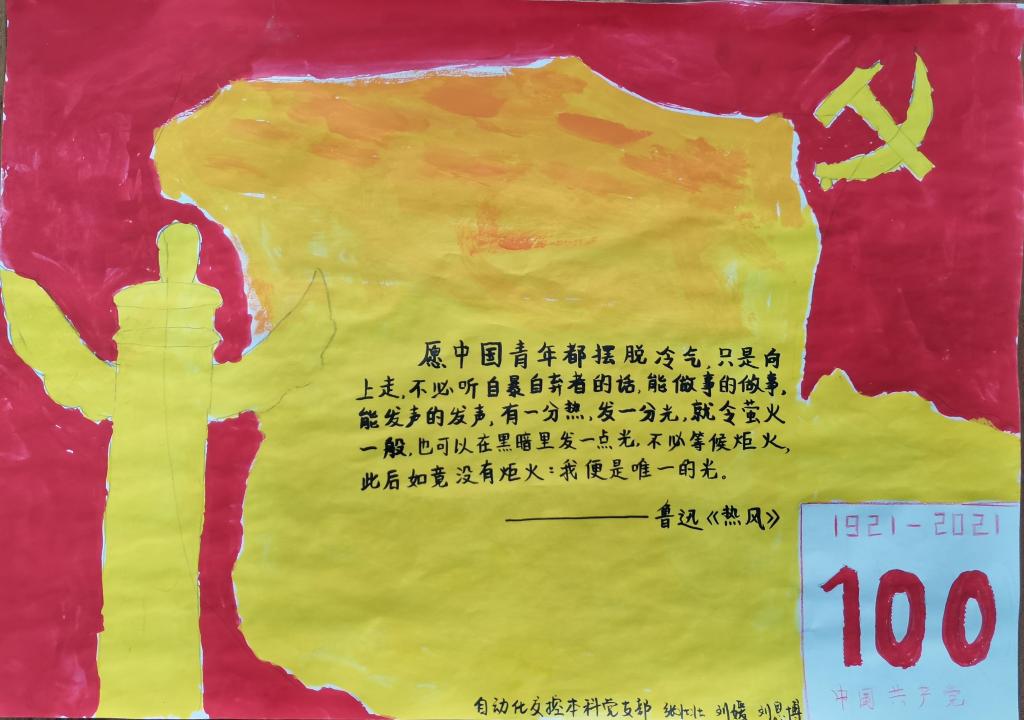 愿中国青年都摆脱冷气,只是向
上走,不必听自暴自弃者的话,能做事的做事,
能发声的发声,有一分热,发一分光,就令萤火
一般,也可以在黑暗里发一点光,不必等候炬火,
此后如竟没有炬火:我便是唯一的光。
——鲁迅《热风》
1921-2021
100
中国共产党
自动化交控本科党支部 刘媛 刘思博